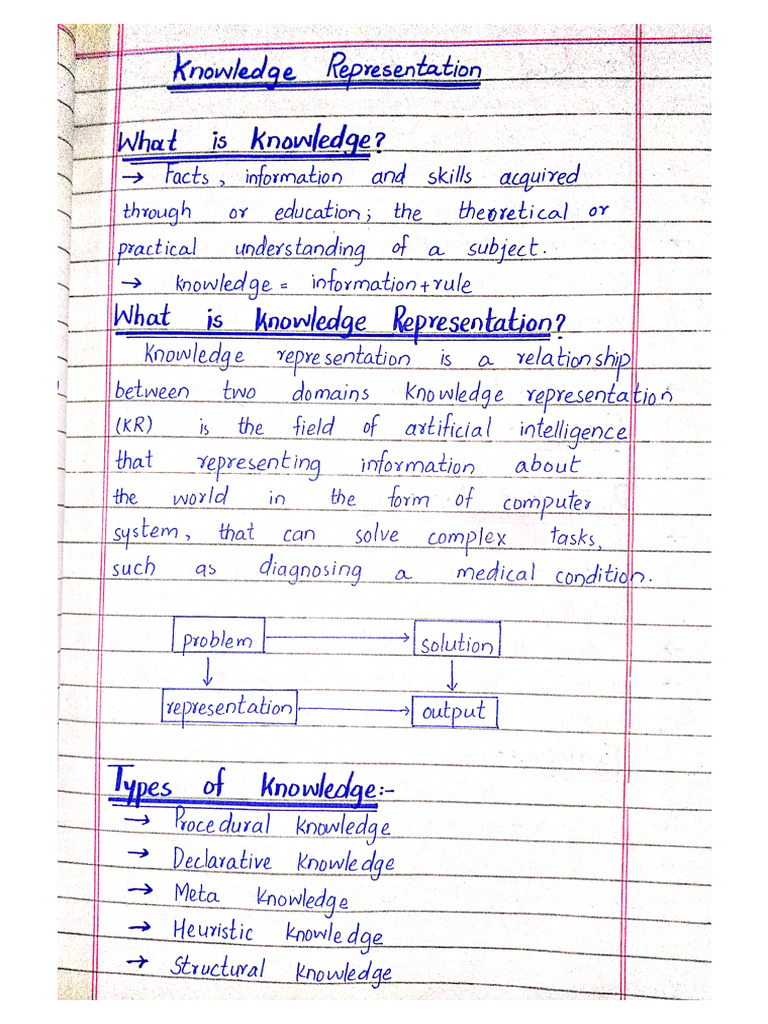 Knowledge Representation
What is Knowledge?
→ Facts, information and skills acquired
through or education; the theoretical or
practical understanding of a subject.
→ knowledge = information+rule
What is Knowledge Representation?
Knowledge representation is a relationship
between two domains knowledge representation
(KR) is the field of artificial intelligence
that representing information about
the world in the form of computer
system, that can solve complex tasks,
such as diagnosing a medical condition.
problem → solution
↓ ↓
representation → output
Types of Knowledge:-
→ Procedural knowledge
→ Declarative knowledge
→ Meta knowledge
→ Heuristic knowledge
→ Structural knowledge